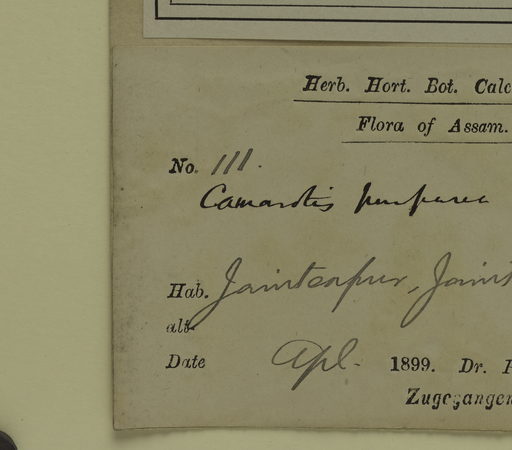 Herb. Hort. Bot. Calc
Flora of Assam.
No. 111.
Camarotis purpurea
Hab. Jainteapur, Jaint
alt.
Date Apl. 1899. Dr. P
Zugegangen